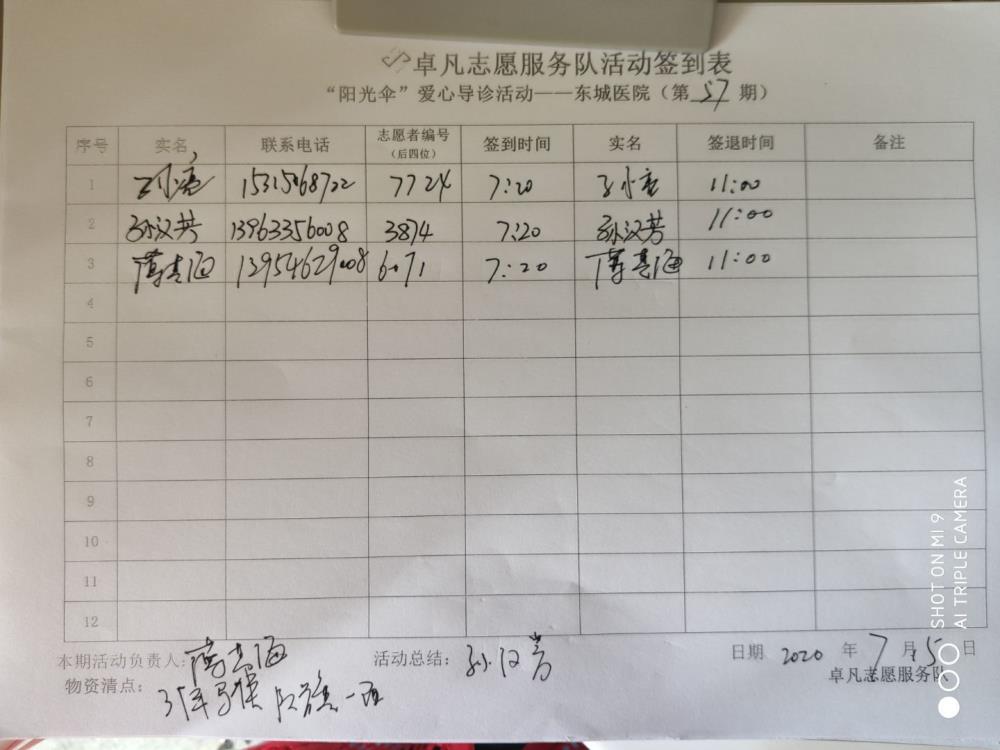 卓凡志愿服务队活动签到表
“阳光伞”爱心导诊活动——东城医院（第57期）
序号 实名 联系电话 志愿者编号（后四位） 签到时间 实名 签退时间 备注
1 7724 7:20 11:00
2 孙汉芳 13963356008 3874 7:20 孙汉芳 11:00
3 13954629008 6071 7:20 11:00
4
5
6
7
8
9
10
11
12
本期活动负责人： 活动总结：孙汉芳 日期 2020 年 7 月 15 日
物资清点： 队旗一面 卓凡志愿服务队
SHOT ON MI 9
AI TRIPLE CAMERA